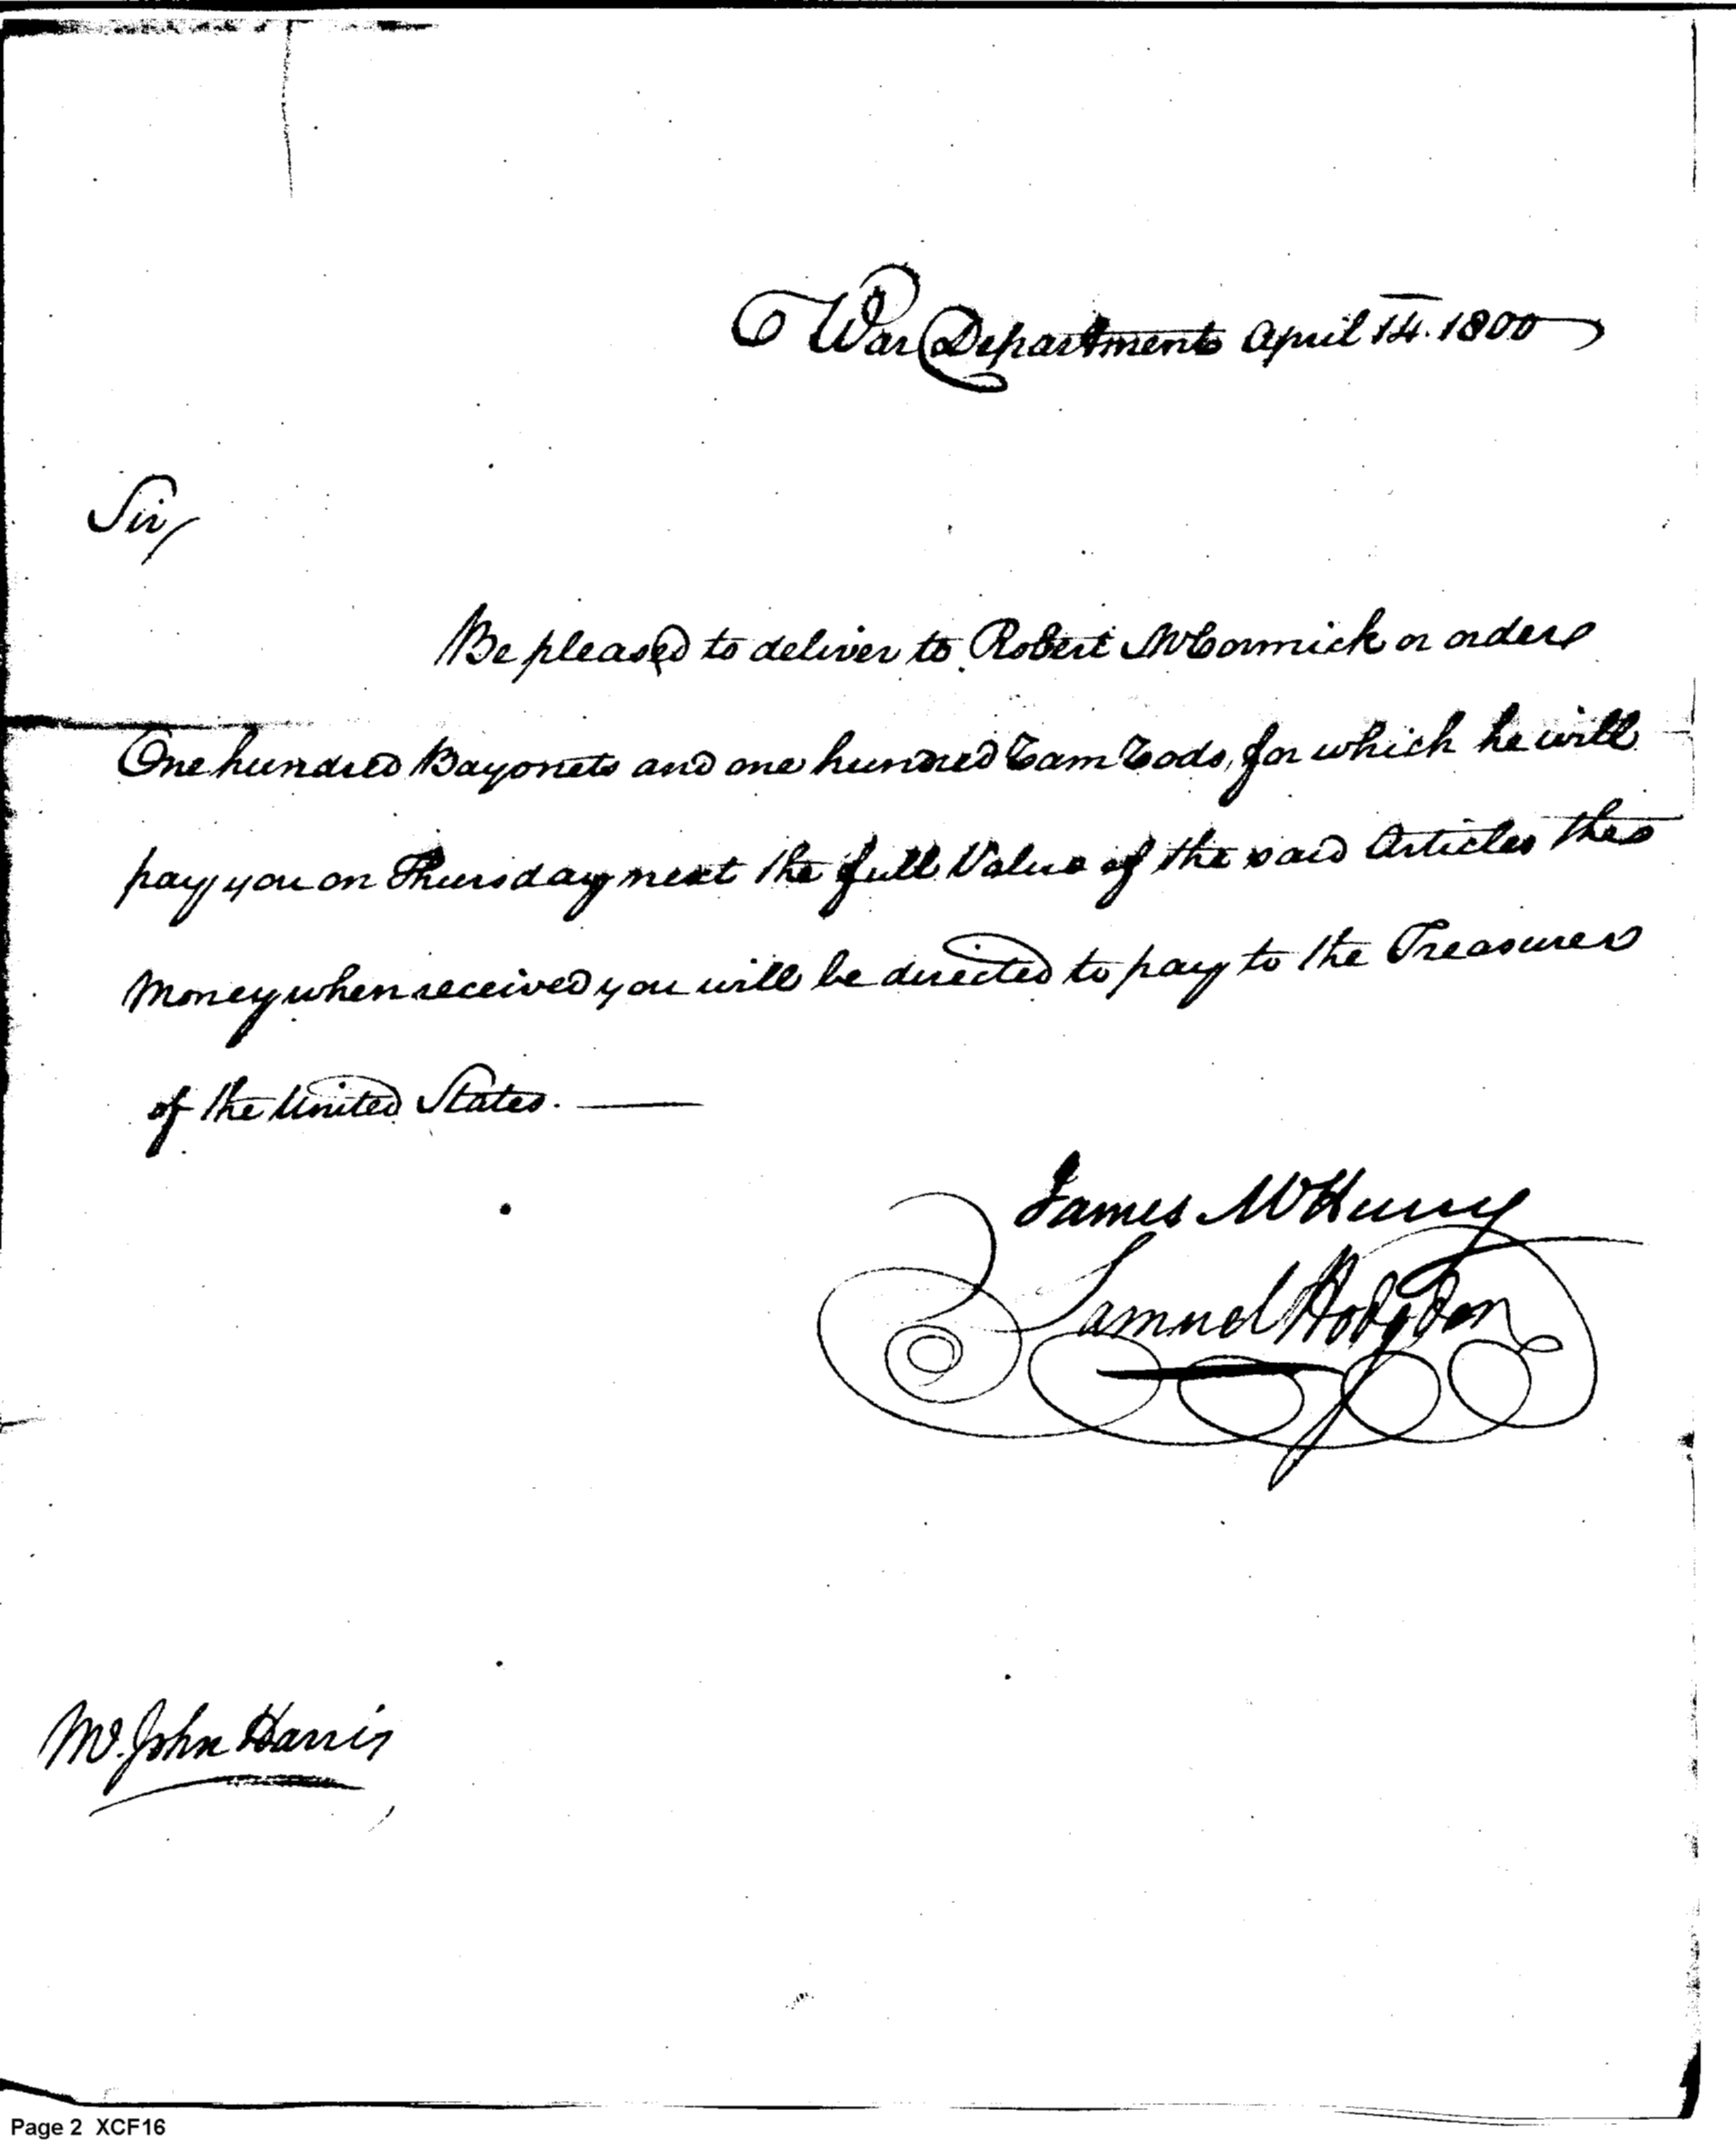 War Department April 14. 1800
Sir,
Be pleased to deliver to Robert McCormick or order
One hundred Bayonets and one hundred Ram Rods, for which he will
pay you on Thursday next the full Value of the said Articles the
money when received you will be directed to pay to the Treasurer
of the United States.
James McHenry
Samuel Hodgdon
Mr. John Harris
Page 2 XCF16